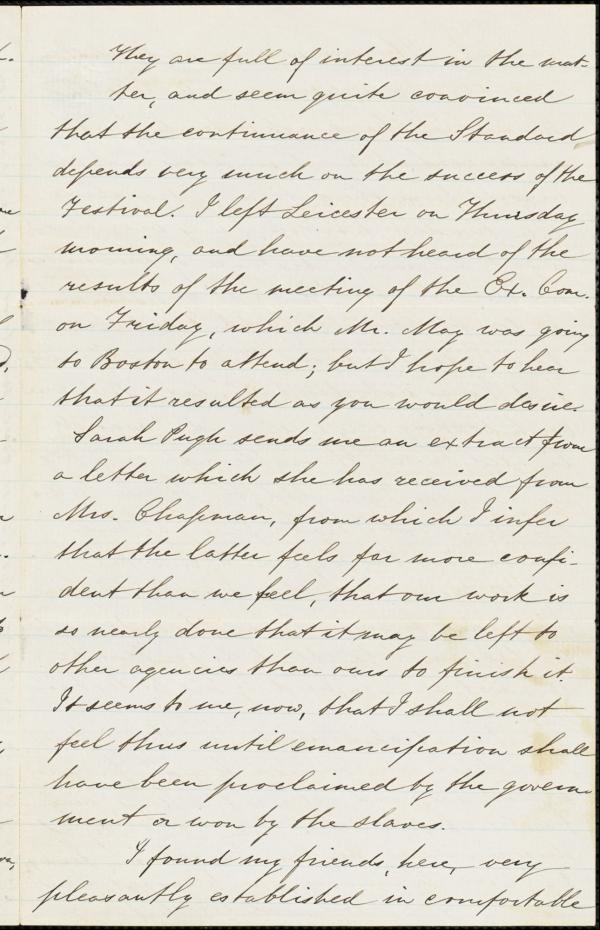 They are full of interest in the mat-
ter, and seem quite convinced
that the continuance of the Standard
depends very much on the success of the
Festival. I left Leicester on Thursday
morning, and have not heard of the
results of the meeting of the Ex. Com.
on Friday, which Mr. May was going
to Boston to attend; but I hope to hear
that it resulted as you would desire.
Sarah Pugh sends me an extract from
a letter which she has received from
Mrs. Chapman, from which I infer
that the latter feels far more confi-
dent than we feel, that our work is
so nearly done that it may be left to
other agencies than ours to finish it.
It seems to me, now, that I shall not
feel thus until emancipation shall
have been proclaimed by the govern-
ment or won by the slaves.
I found my friends, here, very
pleasantly established in comfortable